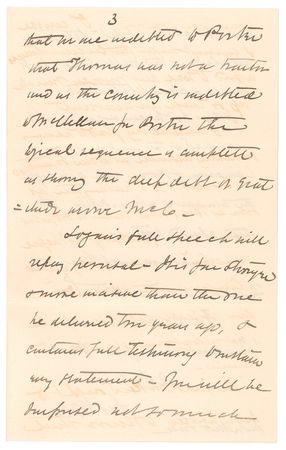 3
that we are indebted to Porter
that Thomas was not a traitor
and as the Country is indebted
to McClellan for Porter the
logical sequence is complete
as showing the deep debt of grat
=itude we owe McC—
Logan's full speech will
repay perusal— It is far stronger
& more incisive than the one
he delivered two years ago, &
contains full testimony to sustain
every statement— You will be
surprised not so much